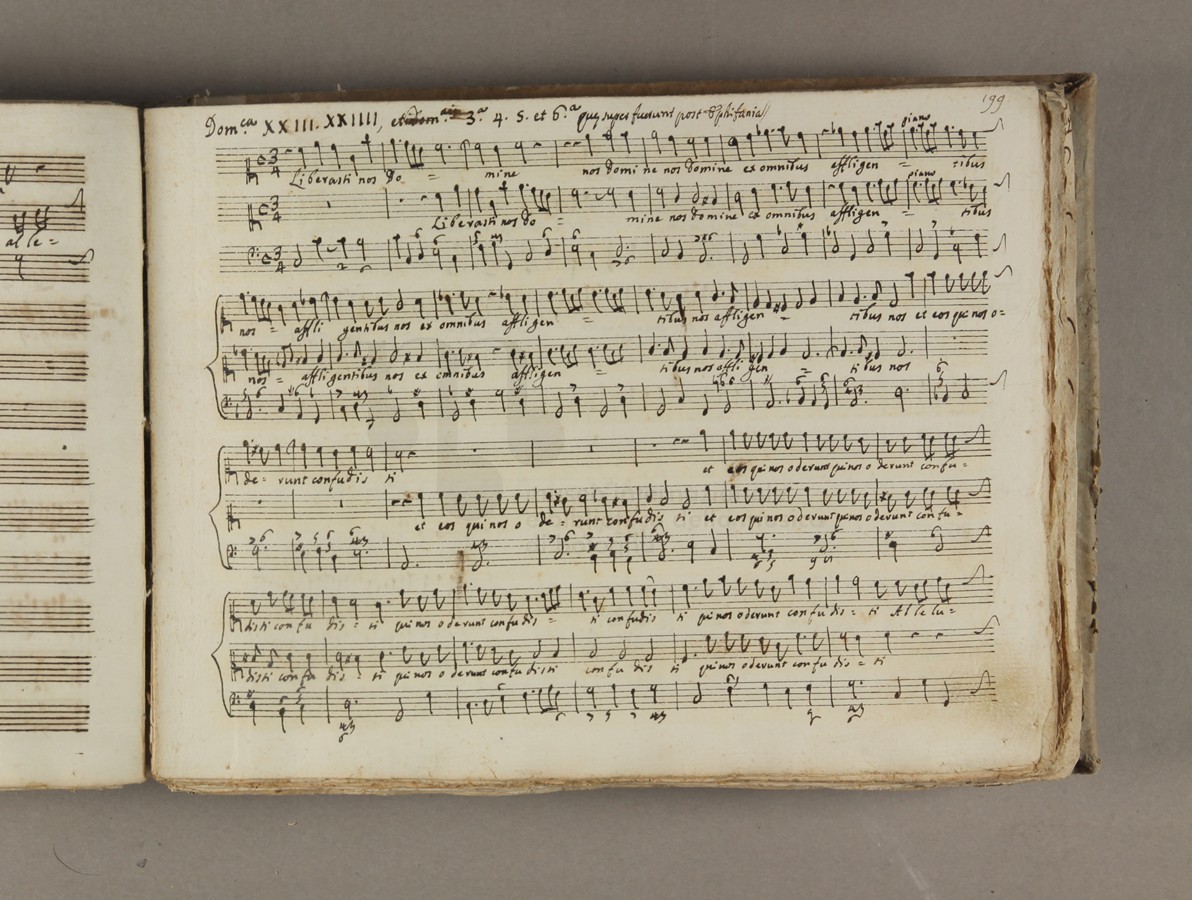 al le =
199
Dom.ca XXIII. XXIIII, 3.a 4. 5. et 6.a quæ super fuerunt post Ephifania
piano
Liberasti nos do = mine nos domine nos domine ex omnibus affligen = tibus
piano
Liberasti nos do = mine nos domine ex omnibus affligen = tibus
nos = affli gentibus nos ex omnibus affligen = tibus nos affligen = tibus nos et eos qui nos o=
nos = affligentibus nos ex omnibus affligen = tibus nos affli gen = ti bus nos
de = runt confudis ti et eos qui nos oderunt qui nos o derunt confu =
et eos qui nos o de = runt confudis ti et eos qui nos oderunt qui nos oderunt con fu =
disti con fu dis = ti qui nos oderunt confu dis = ti confudis ti qui nos oderunt confu dis = ti Al le lu =
disti confu dis = ti qui nos o derunt confu disti confu dis ti qui nos oderunt con fu dis = ti